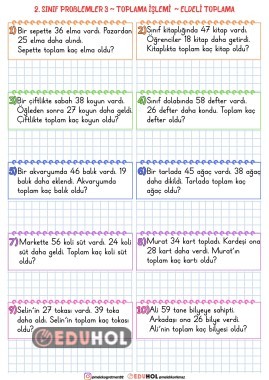 2. SINIF PROBLEMLER 3 ~ TOPLAMA İŞLEMİ ~ ELDELİ TOPLAMA
1) Bir sepette 36 elma vardı. Pazardan
25 elma daha alındı.
Sepette toplam kaç elma oldu?
2) Sınıf kitaplığında 47 kitap vardı.
Öğrenciler 18 kitap daha getirdi.
Kitaplıkta toplam kaç kitap oldu?
3) Bir çiftlikte sabah 38 koyun vardı.
Öğleden sonra 27 koyun daha geldi.
Çiftlikte toplam kaç koyun oldu?
4) Sınıf dolabında 58 defter vardı.
26 defter daha kondu. Toplam kaç
defter oldu?
5) Bir akvaryumda 46 balık vardı. 19
balık daha eklendi. Akvaryumda
toplam kaç balık oldu?
6) Bir tarlada 45 ağaç vardı. 38 ağaç
daha dikildi. Tarlada toplam kaç
ağaç oldu?
7) Markette 56 koli süt vardı. 24 koli
süt daha geldi. Toplam kaç koli süt
oldu?
8) Murat 34 kart topladı. Kardeşi ona
28 kart daha verdi. Murat'ın
toplam kaç kartı oldu?
9) Selin'in 27 tokası vardı. 39 toka
daha aldı. Selin'in toplam kaç tokası
oldu?
10) Ali 59 tane bilyeye sahipti.
Arkadaşı ona 26 bilye verdi.
Ali'nin toplam kaç bilyesi oldu?
EDUHOL
EDUHOL